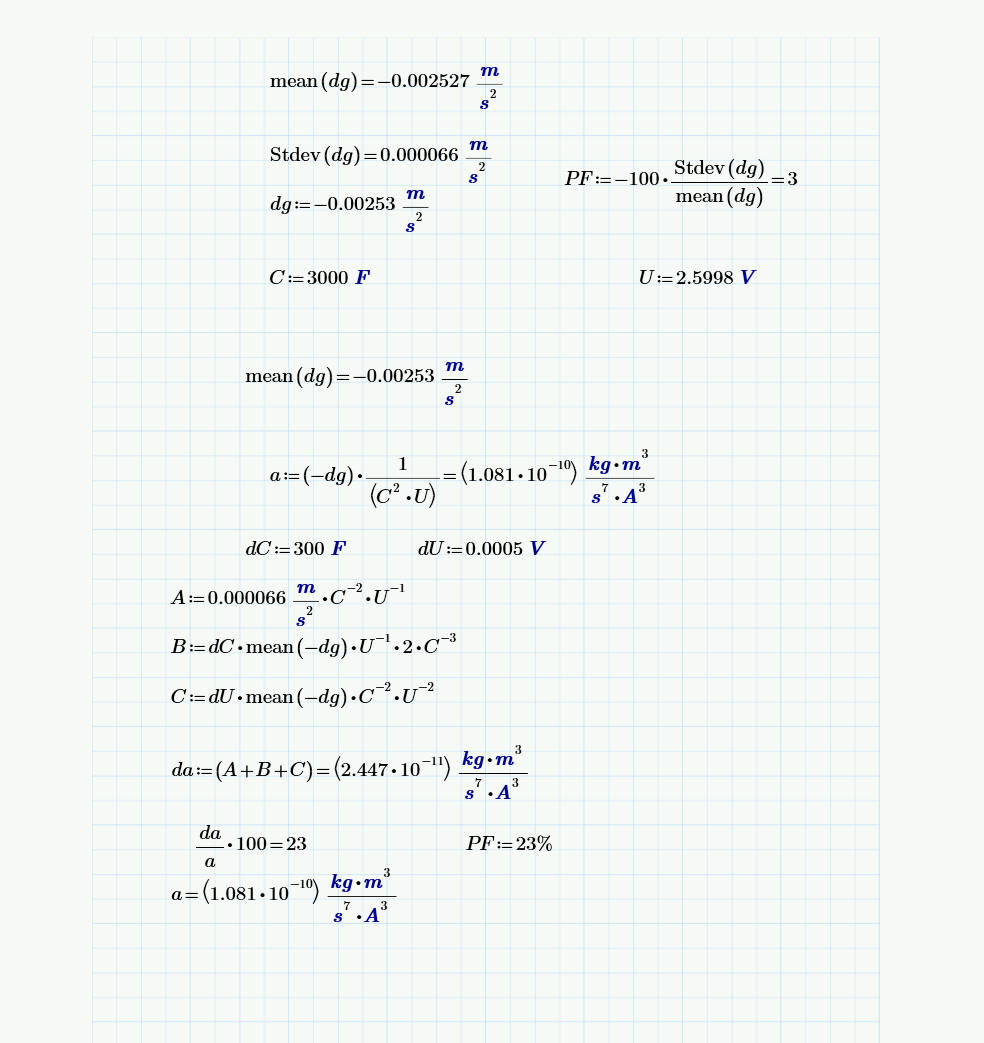 mean(dg)=−0.002527 m/s^2
Stdev(dg)=0.000066 m/s^2
PF:=−100⋅Stdev(dg)/mean(dg)=3
dg:=−0.00253 m/s^2
C:=3000 F
U:=2.5998 V
mean(dg)=−0.00253 m/s^2
a:=(−dg)⋅1/(C^2⋅U)=(1.081⋅10^−10) kg⋅m^3/s^7⋅A^3
dC:=300 F
dU:=0.0005 V
A:=0.000066 m/s^2⋅C^−2⋅U^−1
B:=dC⋅mean(−dg)⋅U^−1⋅2⋅C^−3
C:=dU⋅mean(−dg)⋅C^−2⋅U^−2
da:=(A+B+C)=(2.447⋅10^−11) kg⋅m^3/s^7⋅A^3
da/a⋅100=23
PF:=23%
a=(1.081⋅10^−10) kg⋅m^3/s^7⋅A^3